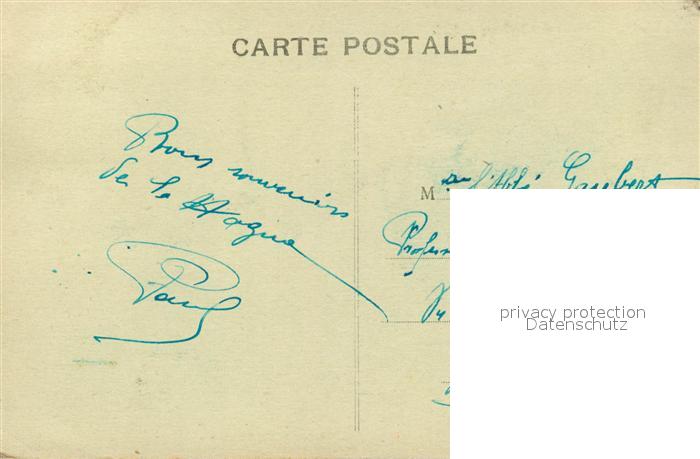 CARTE POSTALE
Bons souvenirs
de la Hague
Paul
M l'Abbé Gaubert
privacy protection
Datenschutz